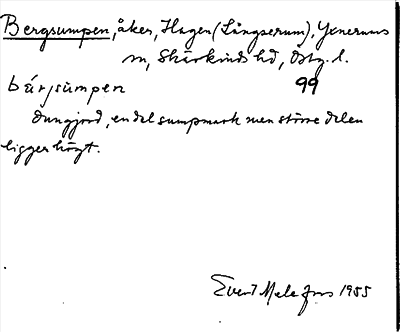 Bergsumpen, åker, Hagen (Långserum), Yxnerums
sn, Skärkinds hd, Östg. l.
bǽrjsùmpen 99
dungjord, en del sumpmark men större delen
ligger högt.
Evert Melefors 1955